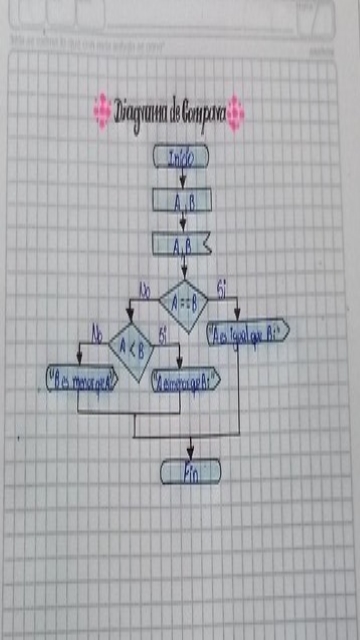 Diagrama de Compara
Inicio
A, B
A,B
No
A==B
Si
"A es igual que B;"
No
A < B
Si
"B es menor que A"
"A es menor que B;"
Fin